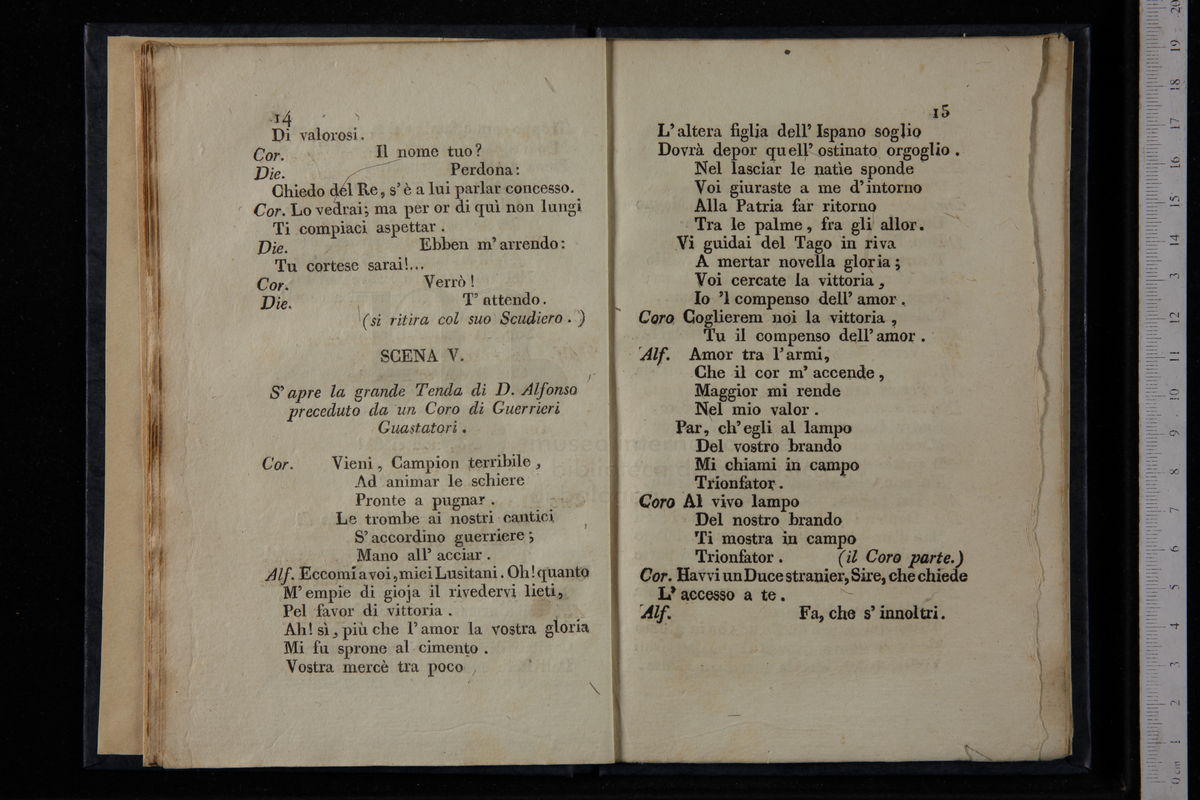 14
Di valorosi.
Cor. Il nome tuo?
Die. Perdona:
Chiedo del Re, s'è a lui parlar concesso.
Cor. Lo vedrai; ma per or di quì non lungi
Ti compiaci aspettar.
Die. Ebben m'arrendo:
Tu cortese sarai!...
Cor. Verrò!
Die. T'attendo.
(si ritira col suo Scudiero.)
SCENA V.
S'apre la grande Tenda di D. Alfonso
preceduto da un Coro di Guerrieri
Guastatori.
Cor. Vieni, Campion terribile,
Ad animar le schiere
Pronte a pugnar.
Le trombe ai nostri cantici
S'accordino guerriere;
Mano all'acciar.
Alf. Eccomi a voi, miei Lusitani. Oh! quanto
M'empie di gioja il rivedervi lieti,
Pel favor di vittoria.
Ah! sì, più che l'amor la vostra gloria
Mi fu sprone al cimento.
Vostra mercè tra poco
15
L'altera figlia dell'Ispano soglio
Dovrà depor quell'ostinato orgoglio.
Nel lasciar le natìe sponde
Voi giuraste a me d'intorno
Alla Patria far ritorno
Tra le palme, fra gli allor.
Vi guidai del Tago in riva
A mertar novella gloria;
Voi cercate la vittoria,
Io 'l compenso dell'amor.
Coro Coglierem noi la vittoria,
Tu il compenso dell'amor.
Alf. Amor tra l'armi,
Che il cor m'accende,
Maggior mi rende
Nel mio valor.
Par, ch'egli al lampo
Del vostro brando
Mi chiami in campo
Trionfator.
Coro Al vivo lampo
Del nostro brando
Ti mostra in campo
Trionfator. (il Coro parte.)
Cor. Havvi un Duce stranier, Sire, che chiede
L'accesso a te.
Alf. Fa, che s'innoltri.